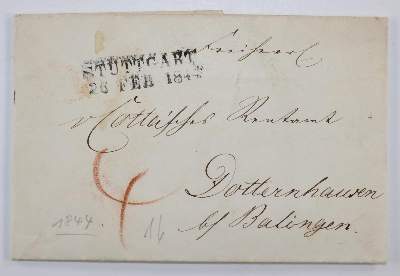 STUTTGART
26 FEB 1844
Freiherrl
v Cottaisches Rentamt
Dotternhausen
bf Balingen.
1844.
16